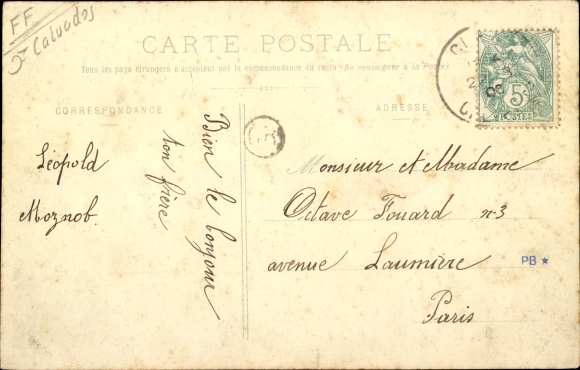 FF
Calvados
CARTE POSTALE
Tous les pays étrangers n'acceptent pas la correspondance au recto (Se renseigner à la Poste)
CORRESPONDANCE
ADRESSE
Léopold
Moznob.
Bien le bonjour
ton frère
Monsieur et Madame
Octave Fouard n:3
avenue Laumière
Paris
5c
POSTES
PB ★